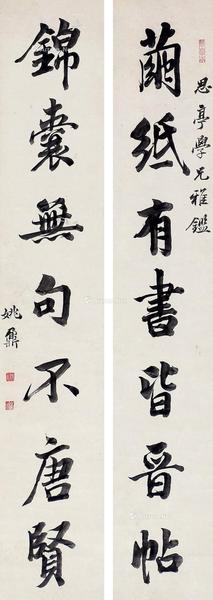 思亭學兄雅鑑
繭紙有書皆晉帖
錦囊無句不唐賢
姚鼐